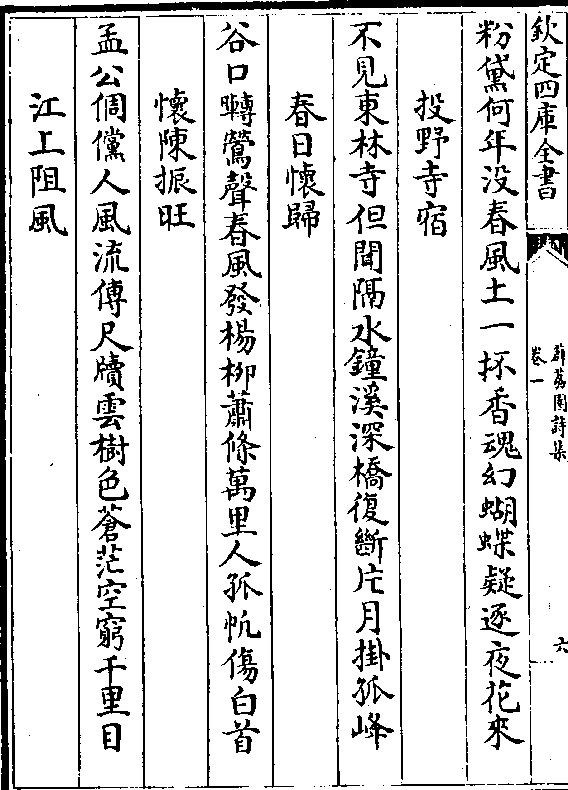 欽定四庫全書
薜荔園詩集
卷一
六
粉黛何年没春風土一抔香魂幻蝴蝶疑逐夜花來
投野寺宿
不見東林寺但聞隔水鐘溪深橋復斷片月掛孤峰
春日懷歸
谷口囀鶯聲春風發楊柳蕭條萬里人孤帆傷白首
懷陳振旺
孟公倜儻人風流傳尺牘雲樹色蒼茫空窮千里目
江上阻風